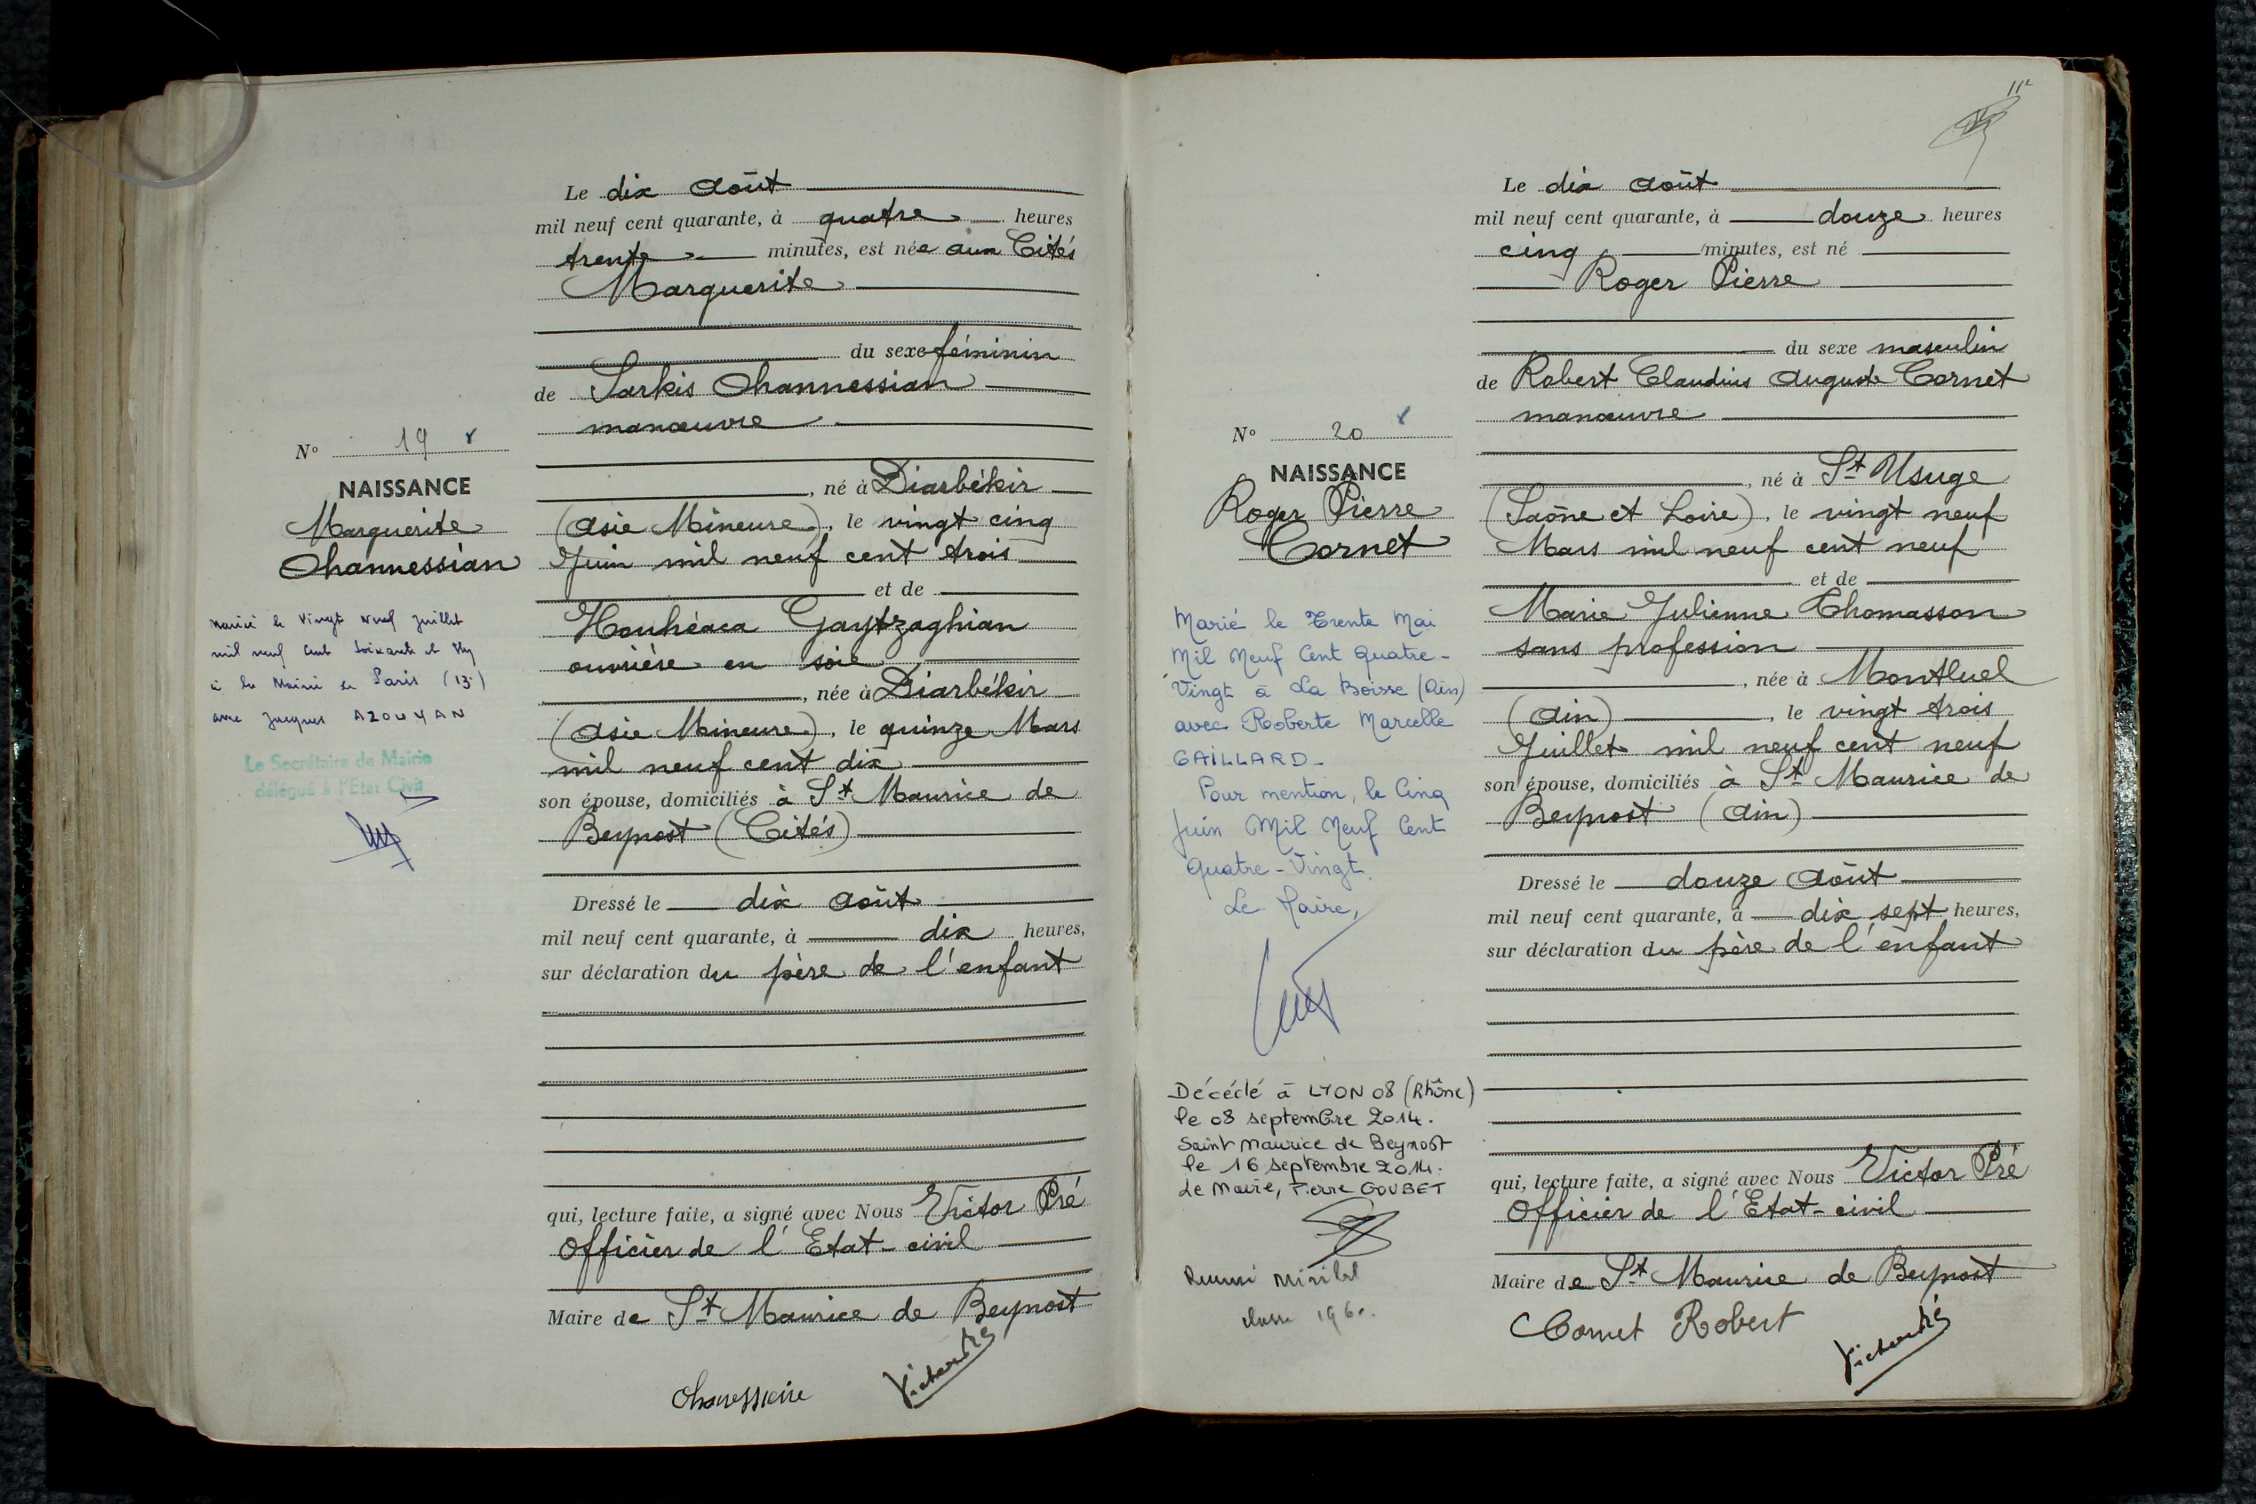 Le dix Août
mil neuf cent quarante, à quatre heures
trente minutes, est née aux Cités
Marguerite
du sexe féminin
de Sarkis Ohannessian
manœuvre
N° 19
NAISSANCE
Marguerite
Ohannessian
, né à Diarbékir
(Asie Mineure), le vingt cinq
Juin mil neuf cent trois
et de
Gaytzaghian
ouvrière en soie
, née à Diarbékir
(Asie Mineure), le quinze Mars
mil neuf cent dix
son épouse, domiciliés à St Maurice de
Beynost (Cités)
Dressé le dix Août
mil neuf cent quarante, à dix heures,
sur déclaration du père de l'enfant
qui, lecture faite, a signé avec Nous Victor Pré
Officier de l'Etat-civil
Maire de St Maurice de Beynost
le Vingt Neuf Juillet
mil neuf cent soixante et
à la Mairie de Paris (13e)
avec Jacques AZOUYAN
Le Secrétaire de Mairie
délégué à l'Etat Civil
Le dix Août
mil neuf cent quarante, à douze heures
cinq minutes, est né
Roger Pierre
du sexe masculin
de Robert Claudius Auguste Cornet
manœuvre
N° 20
NAISSANCE
Roger Pierre
Cornet
, né à St Usuge
(Saône et Loire), le vingt neuf
Mars mil neuf cent neuf
et de
Marie Julienne Thomasson
sans profession
, née à Montluel
(Ain), le vingt trois
Juillet mil neuf cent neuf
son épouse, domiciliés à St Maurice de
Beynost (Ain)
Dressé le douze Août
mil neuf cent quarante, à dix sept heures,
sur déclaration du père de l'enfant
qui, lecture faite, a signé avec Nous Victor Pré
Officier de l'Etat-civil
Maire de St Maurice de Beynost
Cornet Robert
Marié le Trente Mai
Mil Neuf Cent Quatre-
Vingt à La Boisse (Ain)
avec Roberte Marcelle
GAILLARD-
Pour mention, le Cinq
Juin Mil Neuf Cent
Quatre-Vingt.
Le Maire,
Décédé à LYON 08 (Rhône)
le 08 septembre 2014.
Saint Maurice de Beynost
le 16 septembre 2014.
Le Maire, Pierre GOUBET